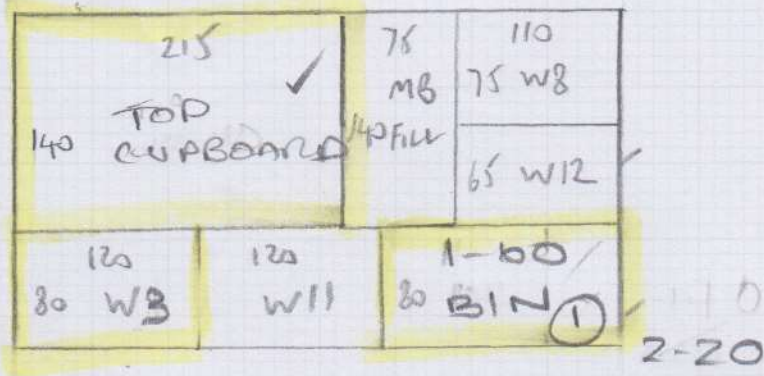 215
140 TOP
CUPBOARD
75
MB
140 FILL
110
75 W8
65 W12
120
80 W3
120
W11
1-60
80 BIN 1
2-20